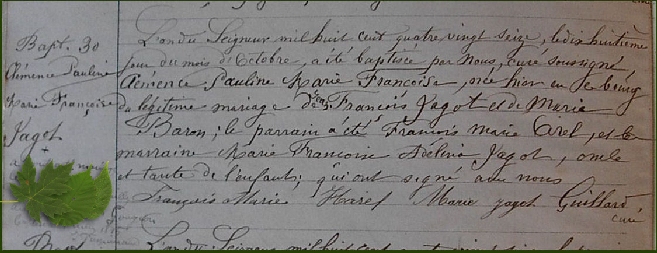 Bapt. 30
Clémence Pauline
Marie Françoise
Jagot
L'an du Seigneur mil huit cent quatre vingt seize, le dix huitième
jour du mois d'Octobre, a été baptisée par Nous, curé soussigné,
Clémence Pauline Marie Françoise, née hier en ce bourg
du légitime mariage de François Jagot et de Marie
Baron; le parrain a été François Marie et la
marraine Marie Françoise Adeline Jagot, oncle
et tante de l'enfant; qui ont signé avec nous
François Marie Marie Jagot Guillard
curé
Bapt
L'an du Seigneur mil huit cent